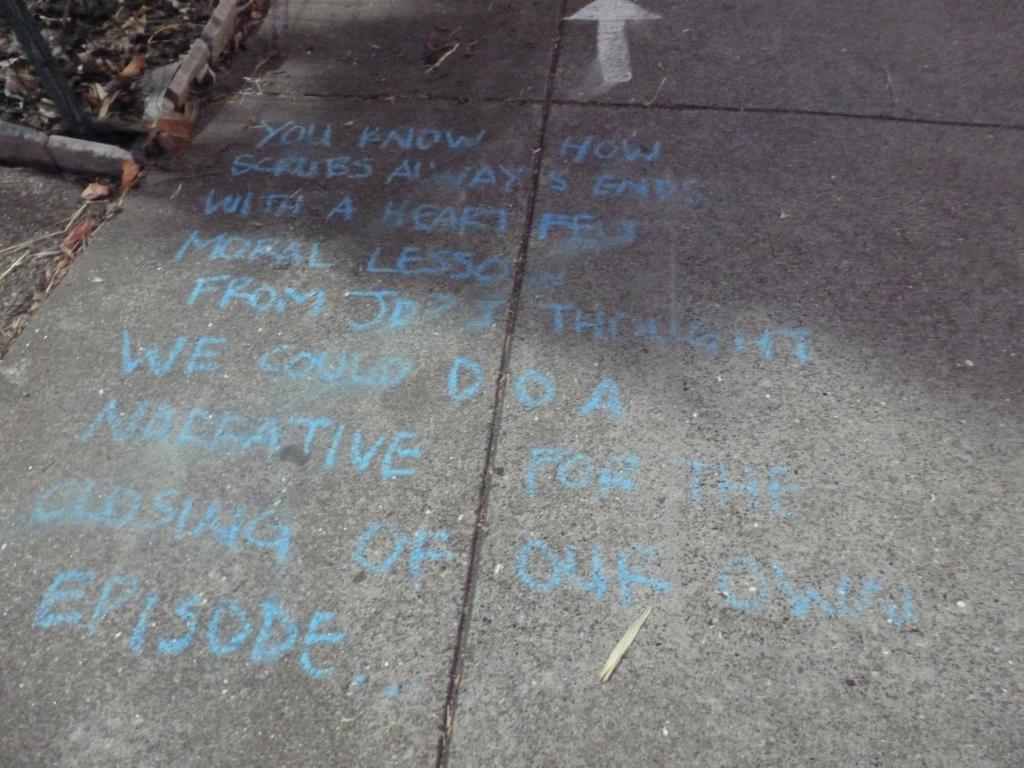 YOU KNOW HOW
SCRUBS ALWAYS ENDS
WITH A HEART FELT
MORAL LESSON
FROM JD? I THOUGHT
WE COULD DO A
NARRATIVE FOR THE
CLOSING OF OUR OWN
EPISODE...